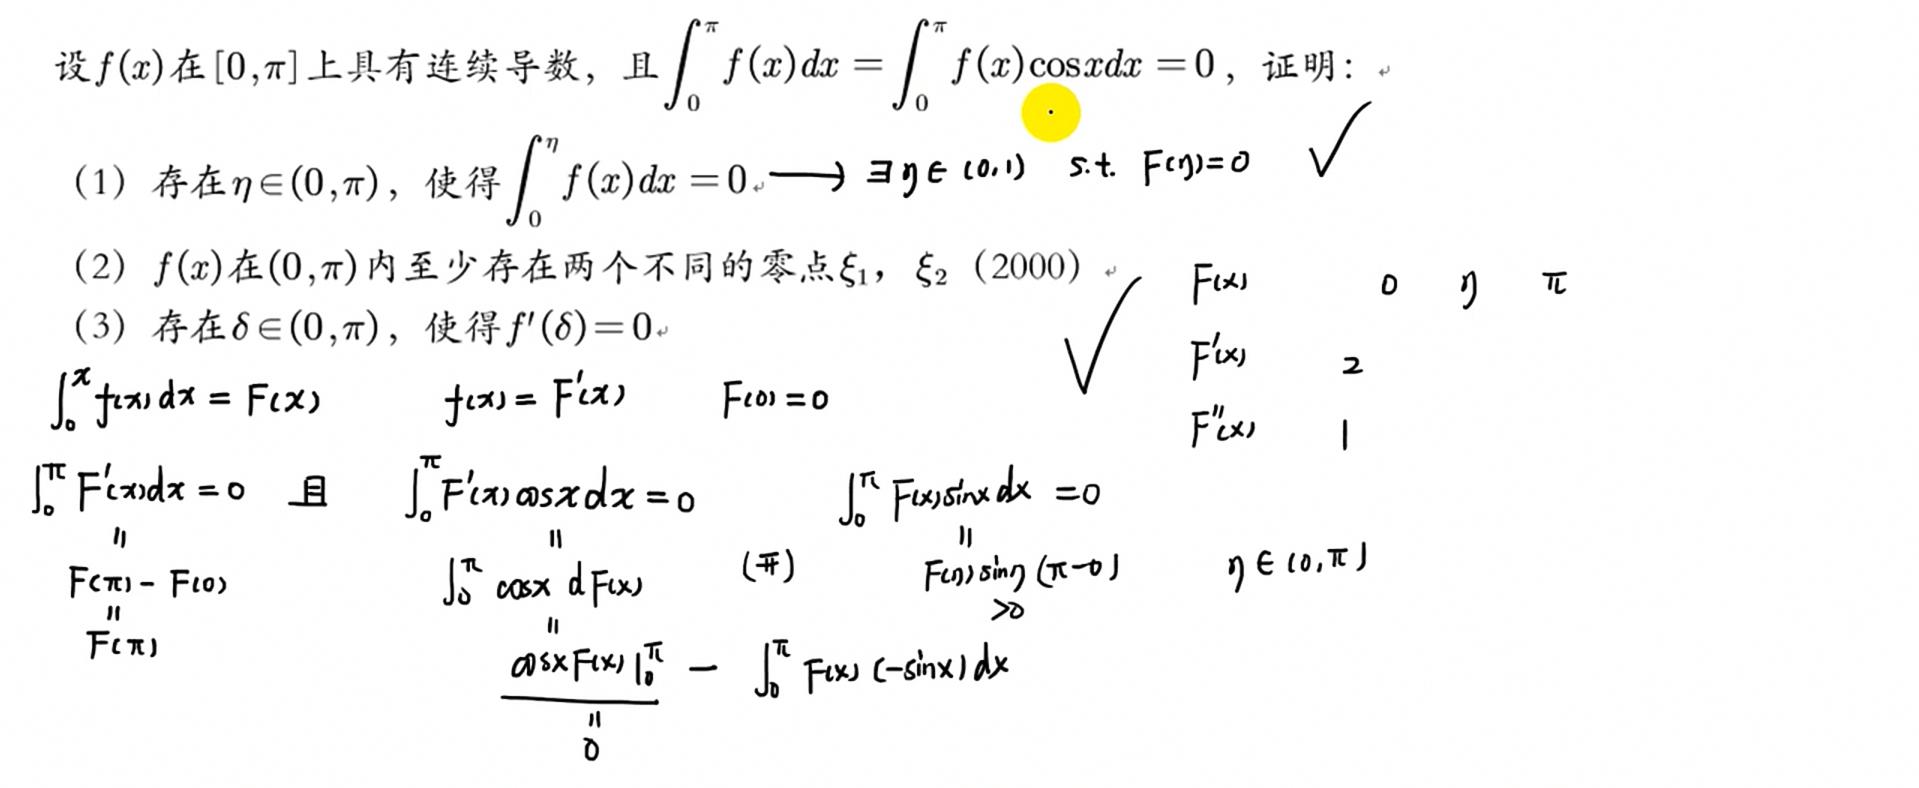 设f(x)在[0,π]上具有连续导数，且∫₀^π f(x)dx = ∫₀^π f(x)cosxdx = 0，证明：
（1）存在η∈(0,π)，使得∫₀^η f(x)dx = 0 ⟶ ∃η∈(0,1) s.t. F(η)=0 ✓
（2）f(x)在(0,π)内至少存在两个不同的零点ξ₁，ξ₂（2000） ✓
（3）存在δ∈(0,π)，使得f′(δ)=0
F(x) 0 η π
F′(x) 2
F″(x) 1
∫₀^x f(x)dx = F(x) f(x) = F′(x) F(0)=0
∫₀^π F′(x)dx = 0 且 ∫₀^π F′(x)cosxdx = 0 ∫₀^π F(x)sinxdx = 0
= = =
F(π) - F(0) ∫₀^π cosx dF(x) F(η)sinη(π-0) η∈(0,π)
>0
= =
F(π) cosxF(x)|₀^π - ∫₀^π F(x)(-sinx)dx
=
0